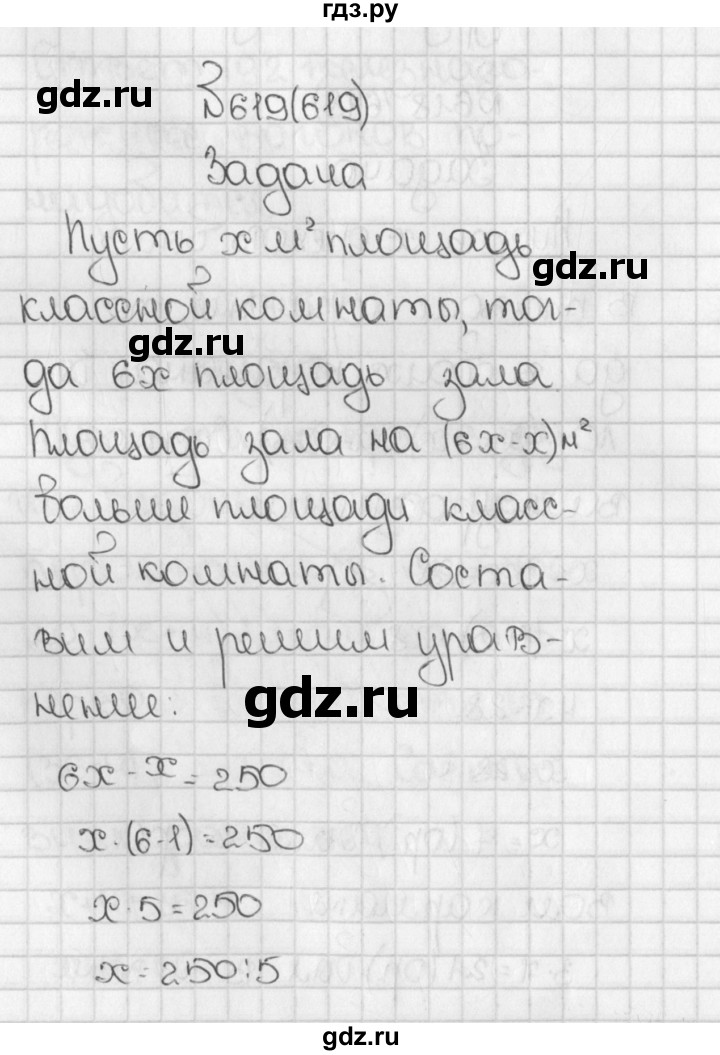 гдз.ру
gdz.ru
№619(619)
Задача
Пусть x м² площадь
gdz.ru
классной комнаты, тог-
gdz.ru
да 6x площадь зала.
Площадь зала на (6x-x)м²
больше площади класс-
ной комнаты. Соста-
вим и решим урав-
нение:
gdz.ru
6x-x=250
x·(6-1)=250
x·5=250
x=250:5
gdz.ru